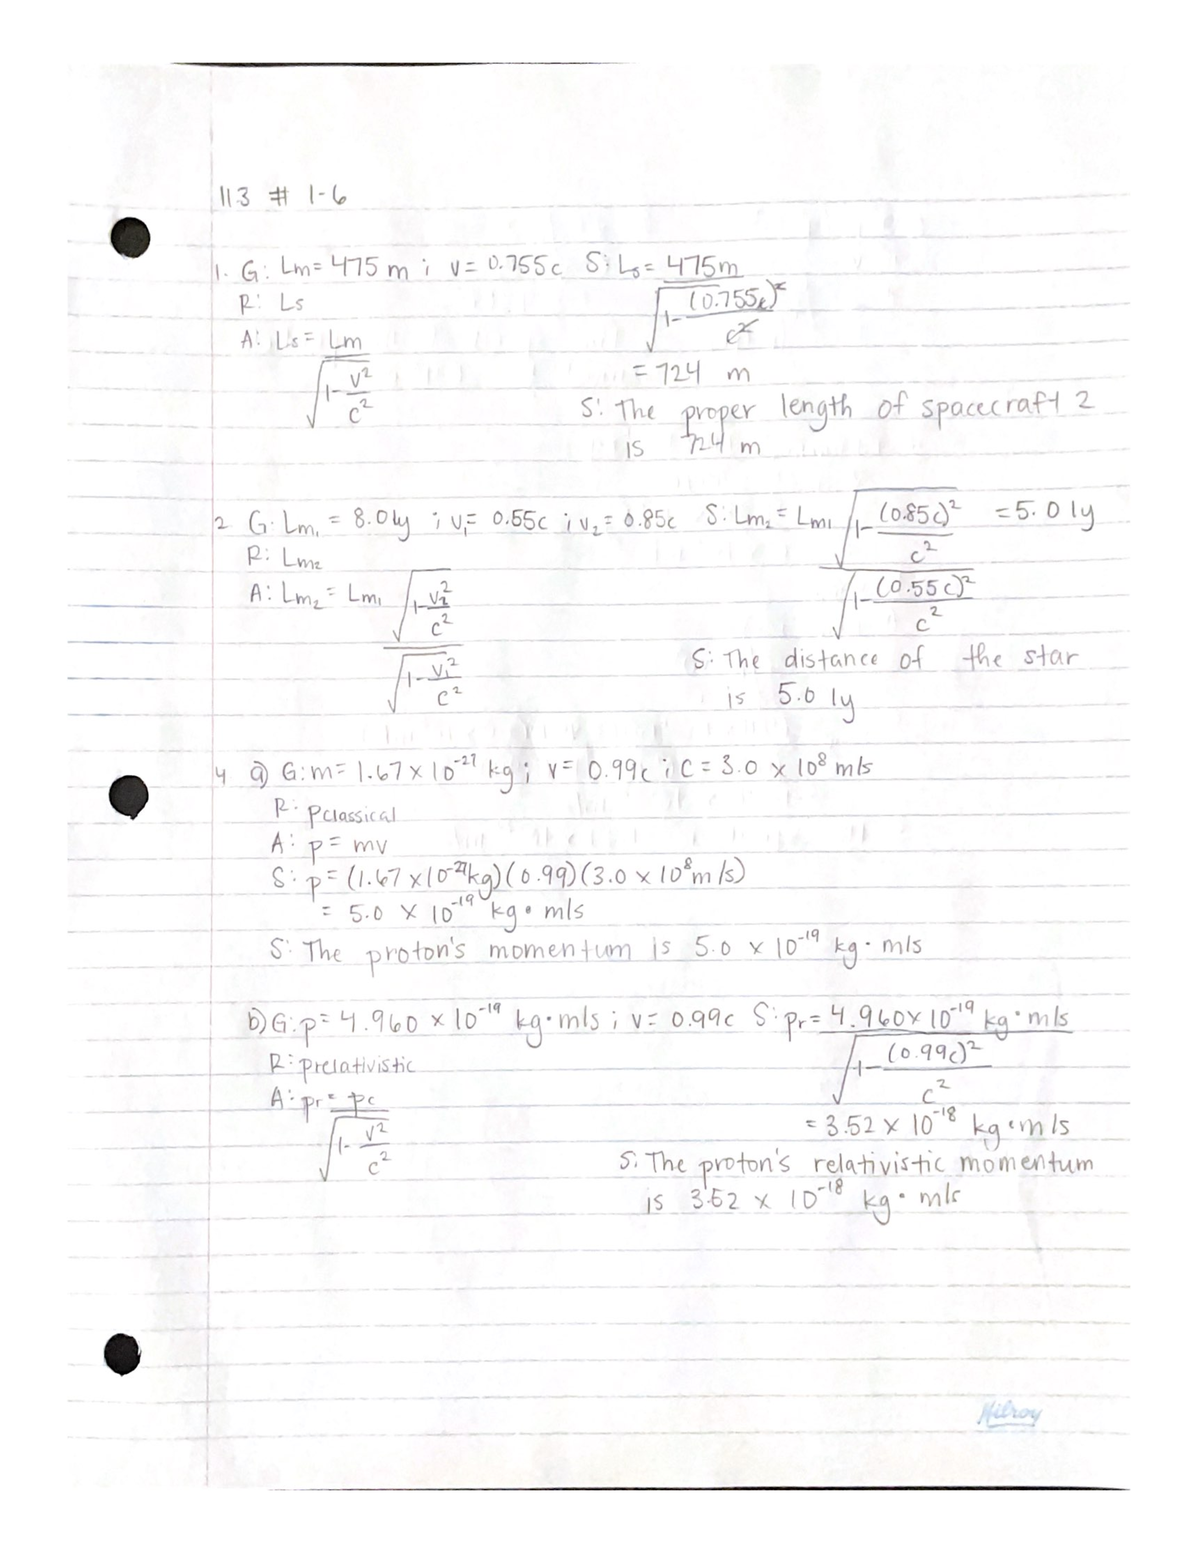 11.3 # 1-6
1. G: Lm = 475 m ; v = 0.755c S: Ls = 475m / √(1 - (0.755c)² / c²)
R: Ls
A: Ls = Lm / √(1 - v² / c²)
= 724 m
S: The proper length of spacecraft 2
is 724 m
2 G: Lm₁ = 8.0 ly ; v₁ = 0.55c ; v₂ = 0.85c S: Lm₂ = Lm₁ √(1 - (0.85c)² / c²) / √(1 - (0.55c)² / c²) = 5.0 ly
R: Lm₂
A: Lm₂ = Lm₁ √(1 - v₂² / c²) / √(1 - v₁² / c²)
S: The distance of the star
is 5.0 ly
4 a) G: m = 1.67 x 10⁻²⁷ kg ; v = 0.99c ; c = 3.0 x 10⁸ m/s
R: pclassical
A: p = mv
S: p = (1.67 x 10⁻²⁷kg)(0.99)(3.0 x 10⁸m/s)
= 5.0 x 10⁻¹⁹ kg • m/s
S: The proton's momentum is 5.0 x 10⁻¹⁹ kg · m/s
b) G: p = 4.960 x 10⁻¹⁹ kg•m/s ; v = 0.99c S: pr = 4.960 x 10⁻¹⁹ kg•m/s / √(1 - (0.99c)² / c²)
R: prelativistic
A: pr = pc / √(1 - v² / c²)
= 3.52 x 10⁻¹⁸ kg•m/s
S: The proton's relativistic momentum
is 3.52 x 10⁻¹⁸ kg • m/s
Hilroy